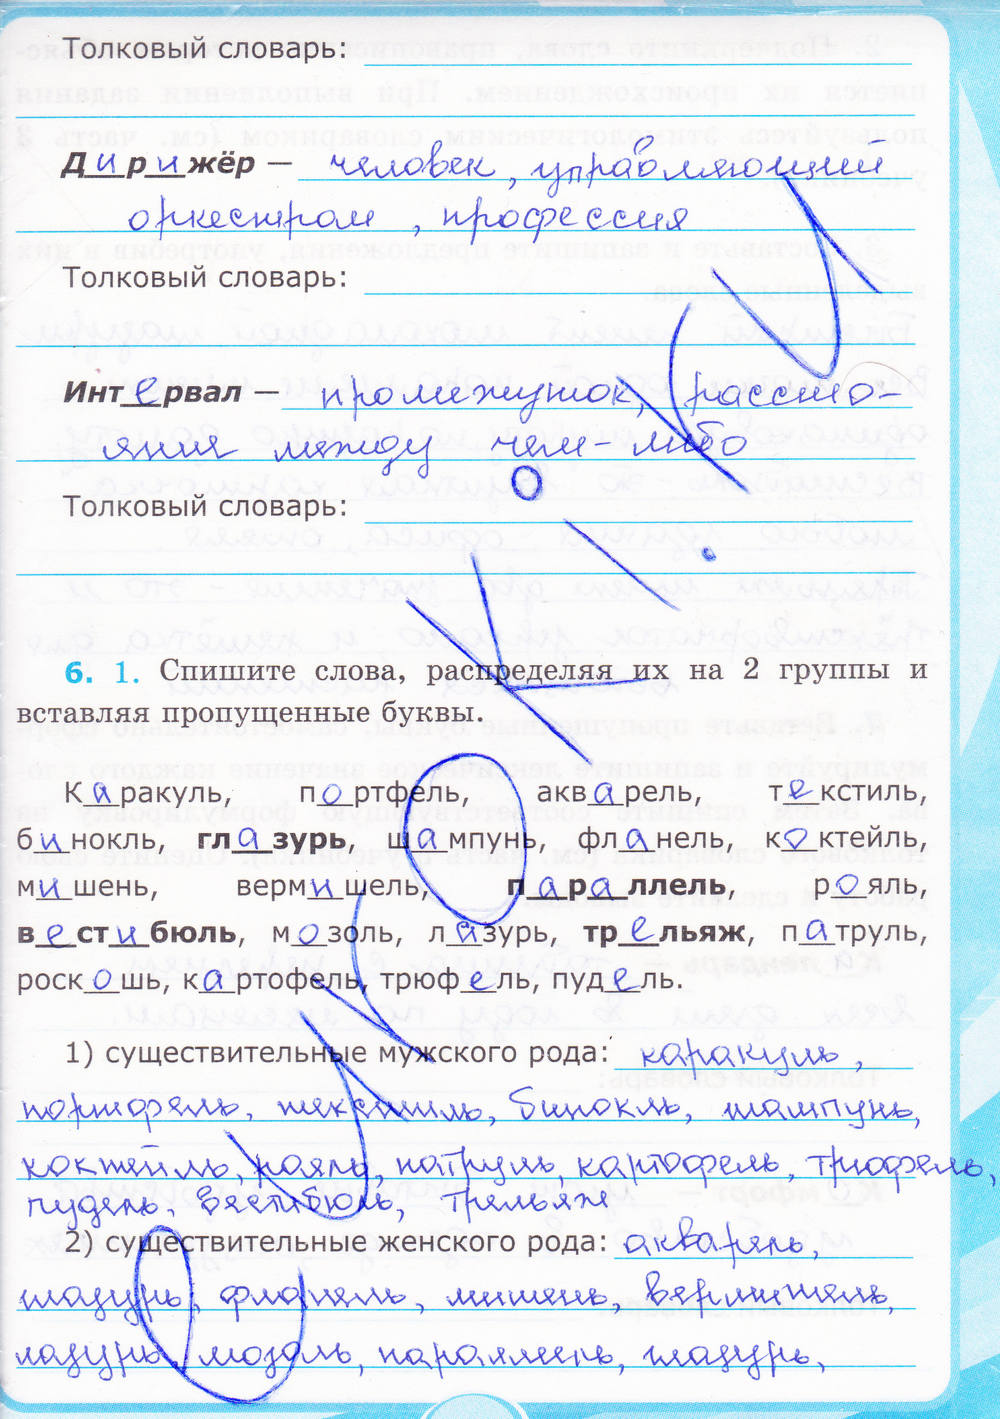 Толковый словарь:
Дирижёр — человек, управляющий
оркестром, профессия
Толковый словарь:
Интервал — промежуток, рассто-
яния между чем-либо
Толковый словарь:
6. 1. Спишите слова, распределяя их на 2 группы и
вставляя пропущенные буквы.
Каракуль, портфель, акварель, текстиль,
бинокль, глазурь, шампунь, фланель, коктейль,
мишень, вермишель, параллель, рояль,
вестибюль, мозоль, лазурь, трельяж, патруль,
роскошь, картофель, трюфель, пудель.
1) существительные мужского рода: каракуль,
портфель, текстиль, бинокль, шампунь,
коктейль, рояль, патруль, картофель, трюфель,
пудель, вестибюль, трельяж
2) существительные женского рода: акварель,
глазурь, фланель, мишень, вермишель,
лазурь, мозоль, параллель, глазурь,
GUMUKOAK1.RU